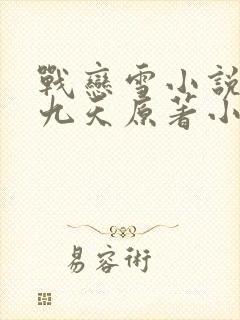 戰戀雪小說
九天原著小
易容術